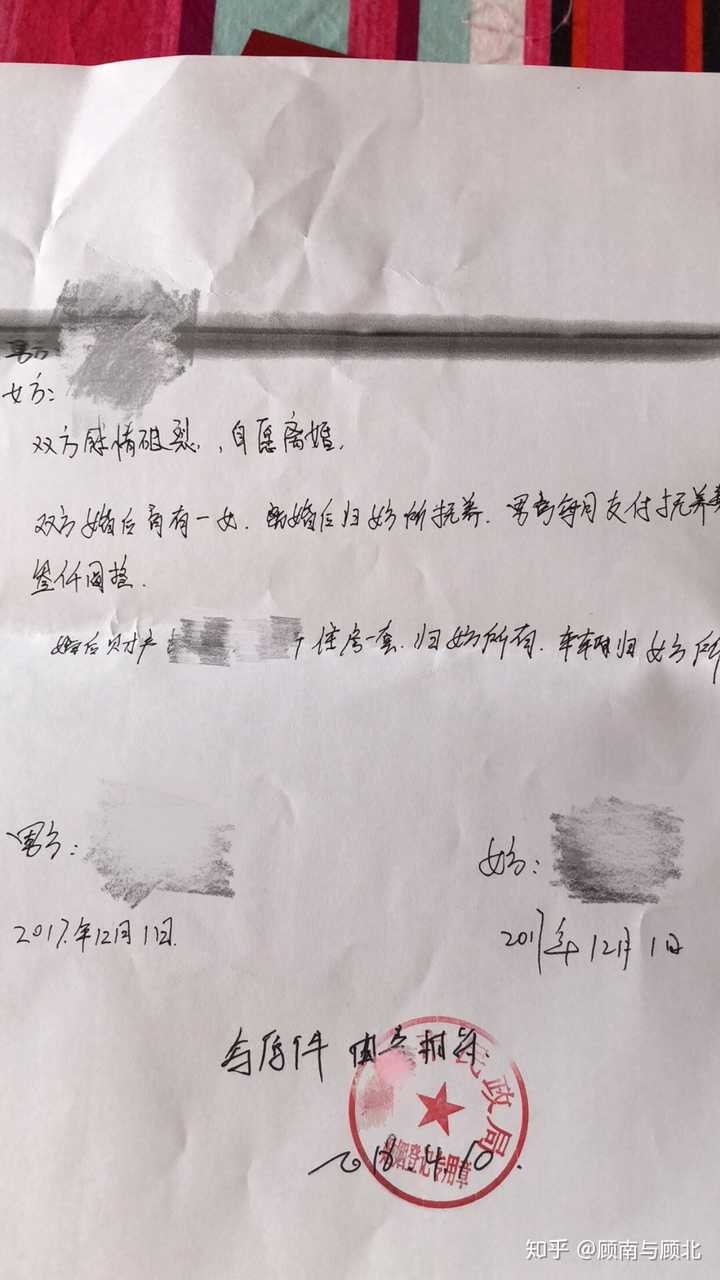 男方
女方:
双方感情破裂,自愿离婚.
双方婚后育有一女.离婚后归女方所抚养.男方每月支付抚养费
叁仟圆整.
婚后财产 住房一套.归女方所有.车辆归女方所
男方:
女方:
2017.年12月1日.
2017年12月1日
与原件 相符.
民政局
婚姻登记专用章
2018.4.10.
知乎 @顾南与顾北